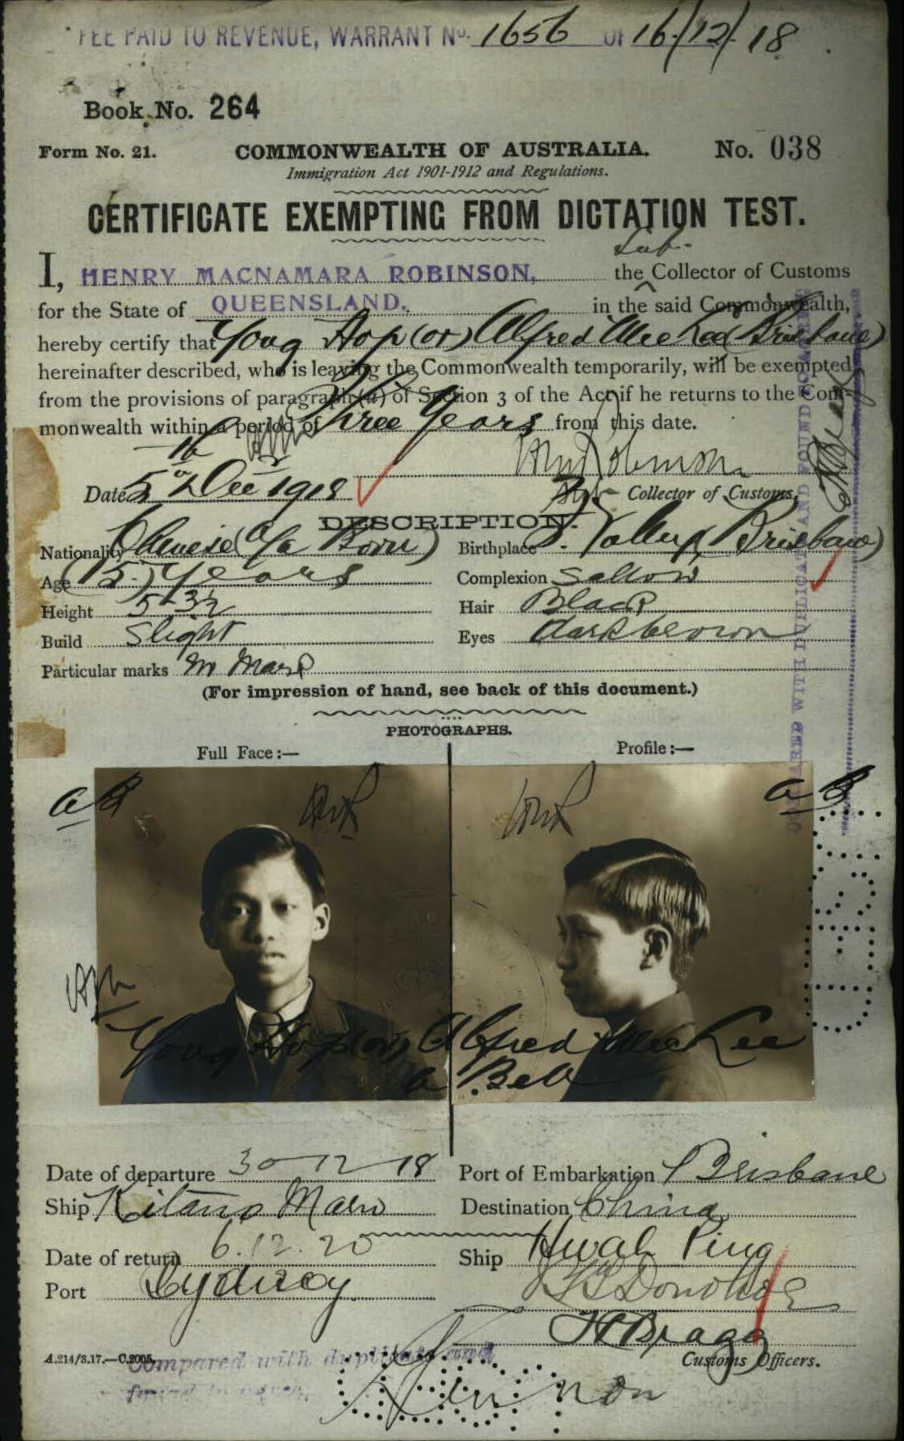 FEE PAID TO REVENUE, WARRANT No. 1656 OF 16/12/18
Book No. 264
Form No. 21. COMMONWEALTH OF AUSTRALIA. No. 038
Immigration Act 1901-1912 and Regulations.
CERTIFICATE EXEMPTING FROM DICTATION TEST.
Sub-
I, HENRY MACNAMARA ROBINSON, the Collector of Customs
for the State of QUEENSLAND. in the said Commonwealth,
hereby certify that Young Hop (or) Alfred (Brisbane)
hereinafter described, who is leaving the Commonwealth temporarily, will be exempted
from the provisions of paragraph (a) of Section 3 of the Act if he returns to the Com-
monwealth within a period of Three Years from this date.
Date Dec 1918 Collector of Customs.
DESCRIPTION.
Nationality Chinese Born) Birthplace Valley Brisbane)
Age (15) years Complexion Sallow
Height 5-3½ Hair Black
Build Slight Eyes dark brown
Particular marks
(For impression of hand, see back of this document.)
PHOTOGRAPHS.
Full Face:— Profile:—
Young Hop (or) Alfred Lee
Date of departure 30-12-18 Port of Embarkation Brisbane
Ship Kitano Maru Destination China
Date of return 6.12.20 Ship Hwah Ping
Port Sydney
Customs Officers.
A.214/3.17.—C.2005.
Compared with duplicate and